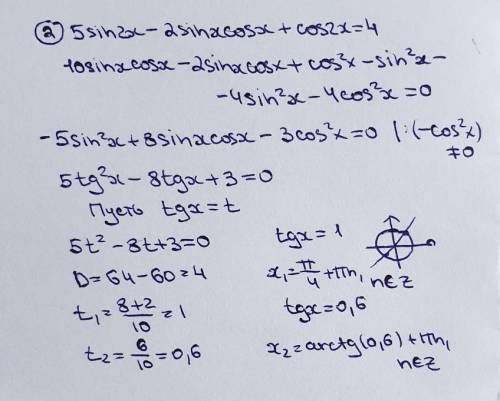 ② 5sin2x - 2sinxcosx + cos2x = 4
10sinxcosx - 2sinxcosx + cos²x - sin²x -
- 4sin²x - 4cos²x = 0
- 5sin²x + 8sinxcosx - 3cos²x = 0 |:(-cos²x)
≠0
5tg²x - 8tgx + 3 = 0
Пусть tgx = t
5t² - 8t + 3 = 0
D = 64 - 60 = 4
t₁ = 8+2/10 = 1
t₂ = 6/10 = 0,6
tgx = 1
x₁ = π/4 + πn, n∈Z
tgx = 0,6
x₂ = arctg(0,6) + πn,
n∈Z